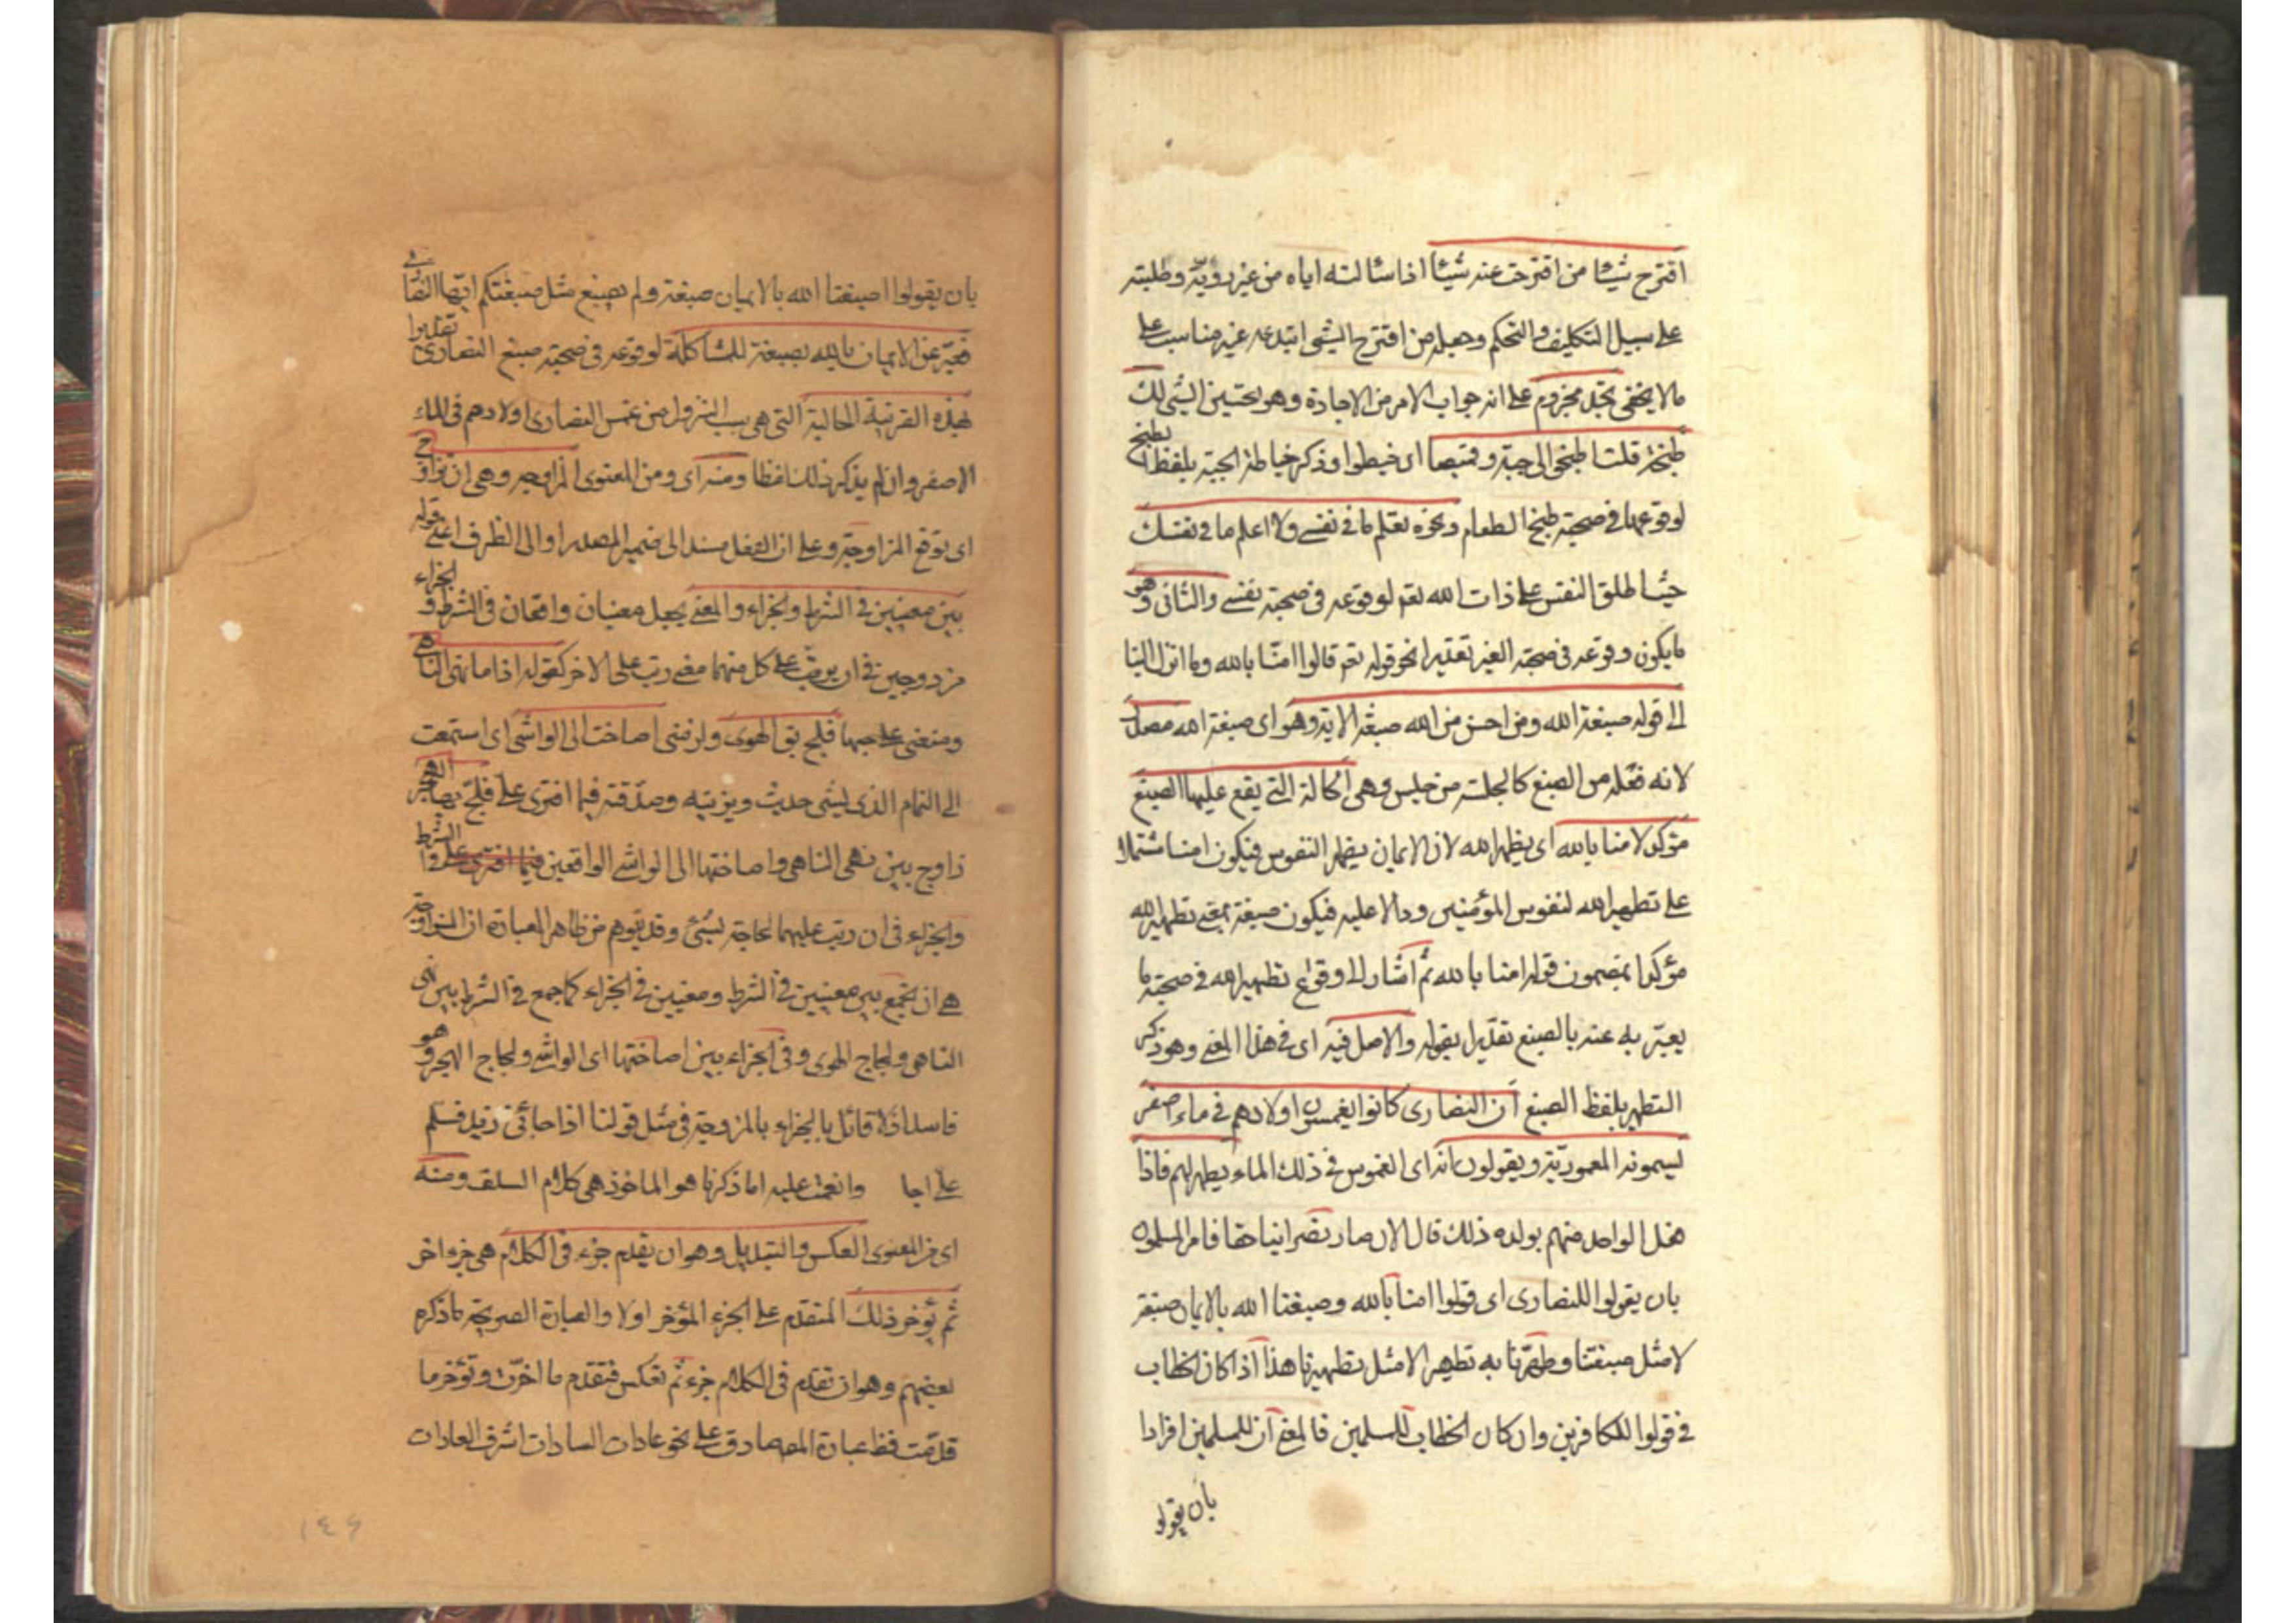 اقترح شيئا من اقترحت عنه شيئا اذا سئالته اياه من غير رويّة وطلبته
على سبيل التكليف والتحكم وجعله من اقترح الشئ ابتدعه غير مناسب على
مالا يخفى نجد مجزوم على انه جواب الامر من الاجادة وهو تحسين الشئ لك
طبخه قلت اطبخوا لى جبة وقميصا اى خيطوا وذكر خياطة الجبة بلفظ الطبخ
لوقوعها فى صحبة طبخ الطعام ونحوه تعلم ما فى نفسى ولا اعلم ما فى نفسك
حيث اطلق النفس على ذات الله تعم لوقوعه فى صحبة نفسى والثانى وهو
ما يكون وقوعه فى صحبة الغير تقديرا نحو قوله تعم قالوا امنّا بالله وما انزل الينا
الى قوله صبغة الله ومن احسن من الله صبغة الاية وهو اى صبغة الله مصدر
لانه فعله من الصبغ كالجلسة من جلس وهى الحالة التى يقع عليها الصبغ
مؤكد لامنا بالله اى يطهر الله لان الايمان يطهر النفوس فيكون امنا مشتملا
على تطهير الله لنفوس المؤمنين ودالا عليه فيكون صبغة بمعنى تطهير الله
مؤكدا بمضمون قوله امنا بالله ثم اشار الى وقوع تطهير الله فى صحبة ما
يعبّر به عنه بالصبغ تقديرا بقوله والاصل فيه اى فى هذا المعنى وهو ذكر
التطهير بلفظ الصبغ ان النصارى كانوا يغمسون اولادهم فى ماء اصفر
يسمونه المعموديّة ويقولون انه اى الغموس فى ذلك الماء يطهر لهم فاذا
فعل الواحد منهم بولده ذلك قال الان صار نصرانيا حقا فامر المسلمون
بان يقولوا للنصارى اى قولوا امنا بالله وصبغنا الله بالايمان صبغة
لا مثل صبغتنا وطهّرنا به تطهيرا لا مثل تطهيرنا هذا اذا كان الخطاب
فى قولوا للكافرين وان كان الخطاب للمسلمين فالمعنى ان المسلمين امروا
بان يقولو
بان يقولوا صبغنا الله بالايمان صبغة ولم يصبغ مثل صبغتكم ايها النصارى
فعبّر عن الايمان بالله بصبغة للمشاكلة لوقوعه فى صحبة صبغ النصارى تقديرا
بهذه القرنية الحالية التى هى سبب النزول من غمس النصارى اولادهم فى الماء
الاصفر وان لم يذكر ذلك لفظا ومنه اى ومن المعنوى المزاوجه وهى ان تزاوج
اى توقع المزاوجة وعلى ان الفعل مسند الى ضمير المصدر او الى الظرف اعنى قوله
بين معنيين فى الشرط والجزاء والمعنى يجعل معنيان واقعان فى الشرط والجزاء
مزدوجين فى ان يرتّب على كل منهما معنى رتب على الاخر كقوله اذا ما نهى الناهى
ومنعنى على حبها فلج بى الهوى ولزمنى اصاخت الى الواشى اى استمعت
الى النمام الذى يشى حديثه ويزينه وصدّقته فيما افترى على فلج بها الهجر
زاوج بين نهى الناهى واصاختها الى الواشى الواقعين فيما افترى على فى الشرط
والجزاء فى ان رتب عليهما لحاجة شئ وقد يتوهم من ظاهر العبارة ان المزاوجة
هى ان يجمع بين معنيين فى الشرط ومعنيين فى الجزاء كما جمع فى الشرط بين نهى
الناهى ولجاج الهوى وفى الجزاء بين اصاختها اى الواشى ولجاج الهجر وهو
فاسد اذ لا قائل بالجزاء بالمزوجة فى مثل قولنا اذا جائنى زيد فسلم
على اجا وانعمت عليه اما ذكرنا هو الماخوذ هى كلام السلف ومنه
اى من المعنوى العكس والتبديل وهو ان يقدم جزء فى الكلام هى جزو اخر
ثم يؤخر ذلك المتقدم على الجزء المؤخر اولا والعبارة الصريحة ما ذكره
بعضهم وهو ان تقدم فى الكلام جزء ثم تعكس فتقدم ما اخّرت وتؤخر ما
قدّمت فظ عبارة المصه صادق على نحو عادات السادات اشرف العادات
١٤٦